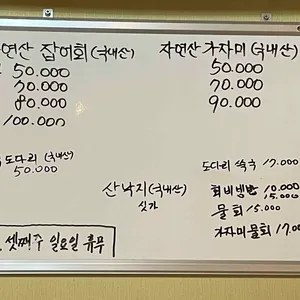 자연산 잡어회 (국내산)
50.000
70.000
80.000
100.000
자연산 가자미 (국내산)
50.000
70.000
90.000
도다리 (국내산)
50.000
산낙지 (국내산)
싯가
도다리 쑥국 17.000
회비빔밥 10.000
15.000
물회 15.000
가자미물회 17.00
셋째주 일요일 휴무